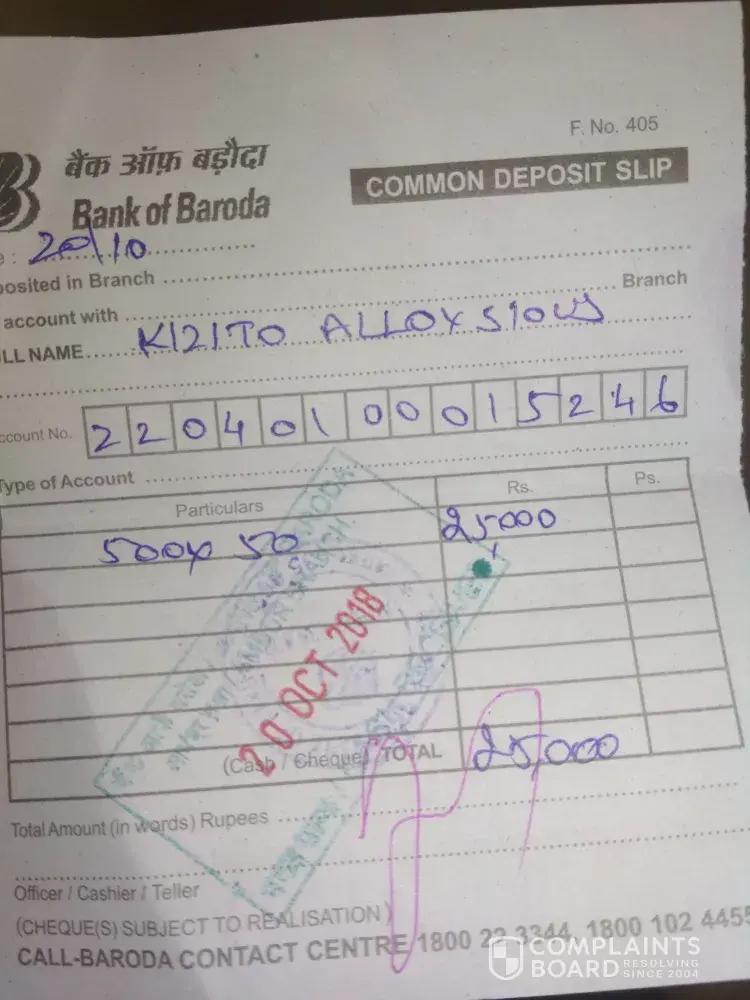 F. No. 405
बैंक ऑफ़ बड़ौदा
Bank of Baroda
COMMON DEPOSIT SLIP
e : 20/10
posited in Branch
account with Branch
LL NAME KIZITO ALLOYSIOUS
ccount No. 22040100015246
Type of Account
Particulars Rs. Ps.
500x 50 25000
20 OCT 2018
(Cash / Cheque) TOTAL 25,000
Total Amount (in words) Rupees
Officer / Cashier / Teller
(CHEQUE(S) SUBJECT TO REALISATION)
CALL-BARODA CONTACT CENTRE 1800 22 3344, 1800 102 4455
COMPLAINTS
BOARD RESOLVING
SINCE 2004